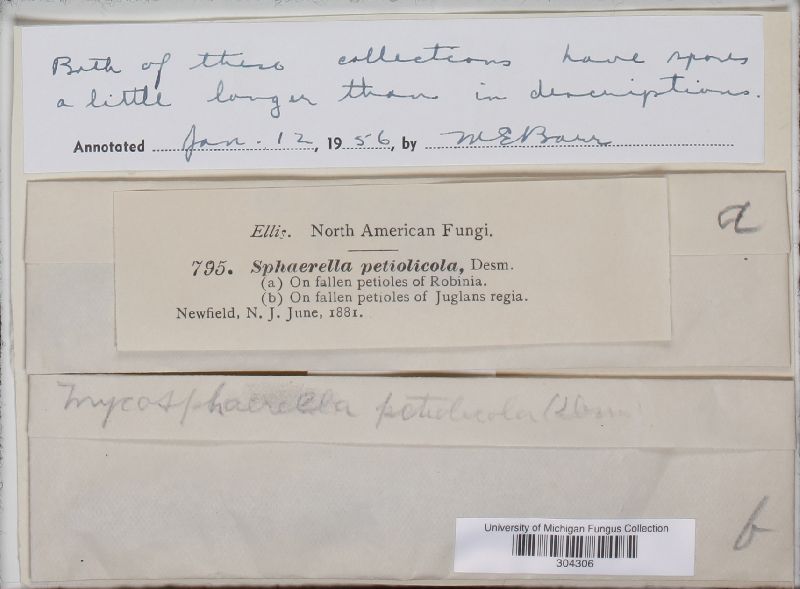 Both of these collections have spores
a little longer than in descriptions.
Annotated Jan. 12, 1956, by M E Barr
a
Ellis. North American Fungi.
795. Sphaerella petiolicola, Desm.
(a) On fallen petioles of Robinia.
(b) On fallen petioles of Juglans regia.
Newfield, N. J. June, 1881.
Mycosphaerella petiolicola (Desm)
b
University of Michigan Fungus Collection
304306